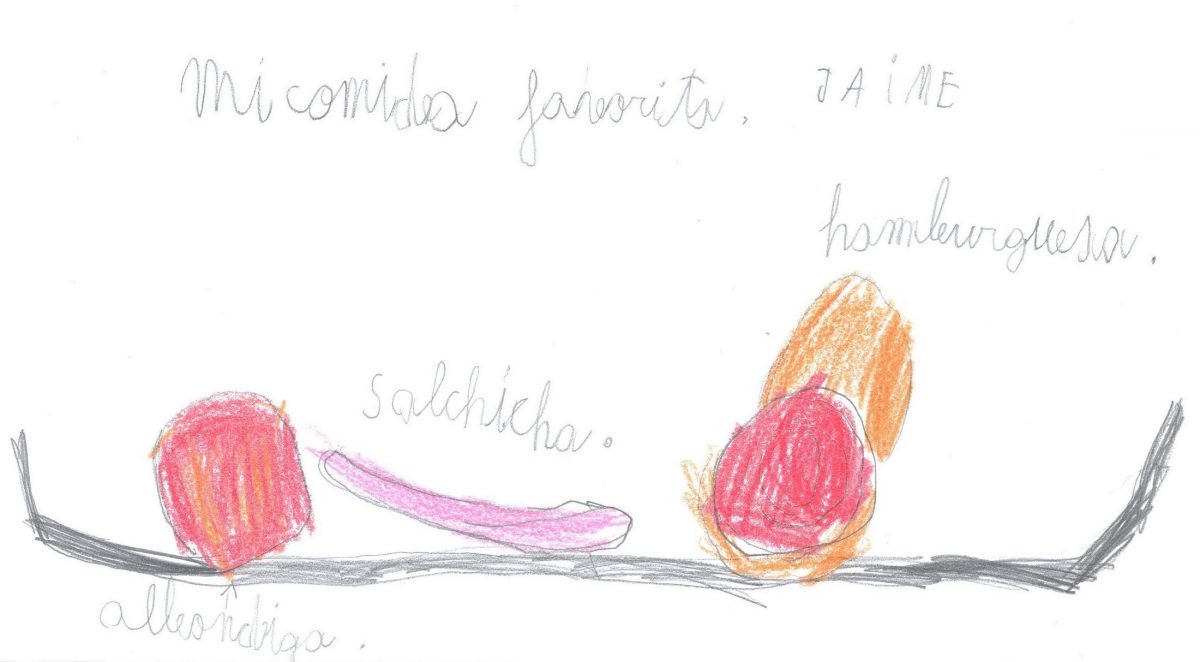 Mi comida favorita. JAiME
hamburguesa.
salchicha.
albóndiga.